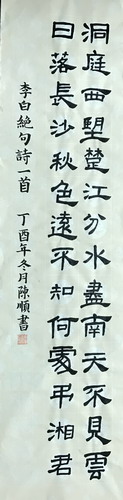 洞庭西望楚江分水盡南天不見雲
日落長沙秋色遠不知何處弔湘君
李白絕句詩一首　丁酉年冬月陳順書